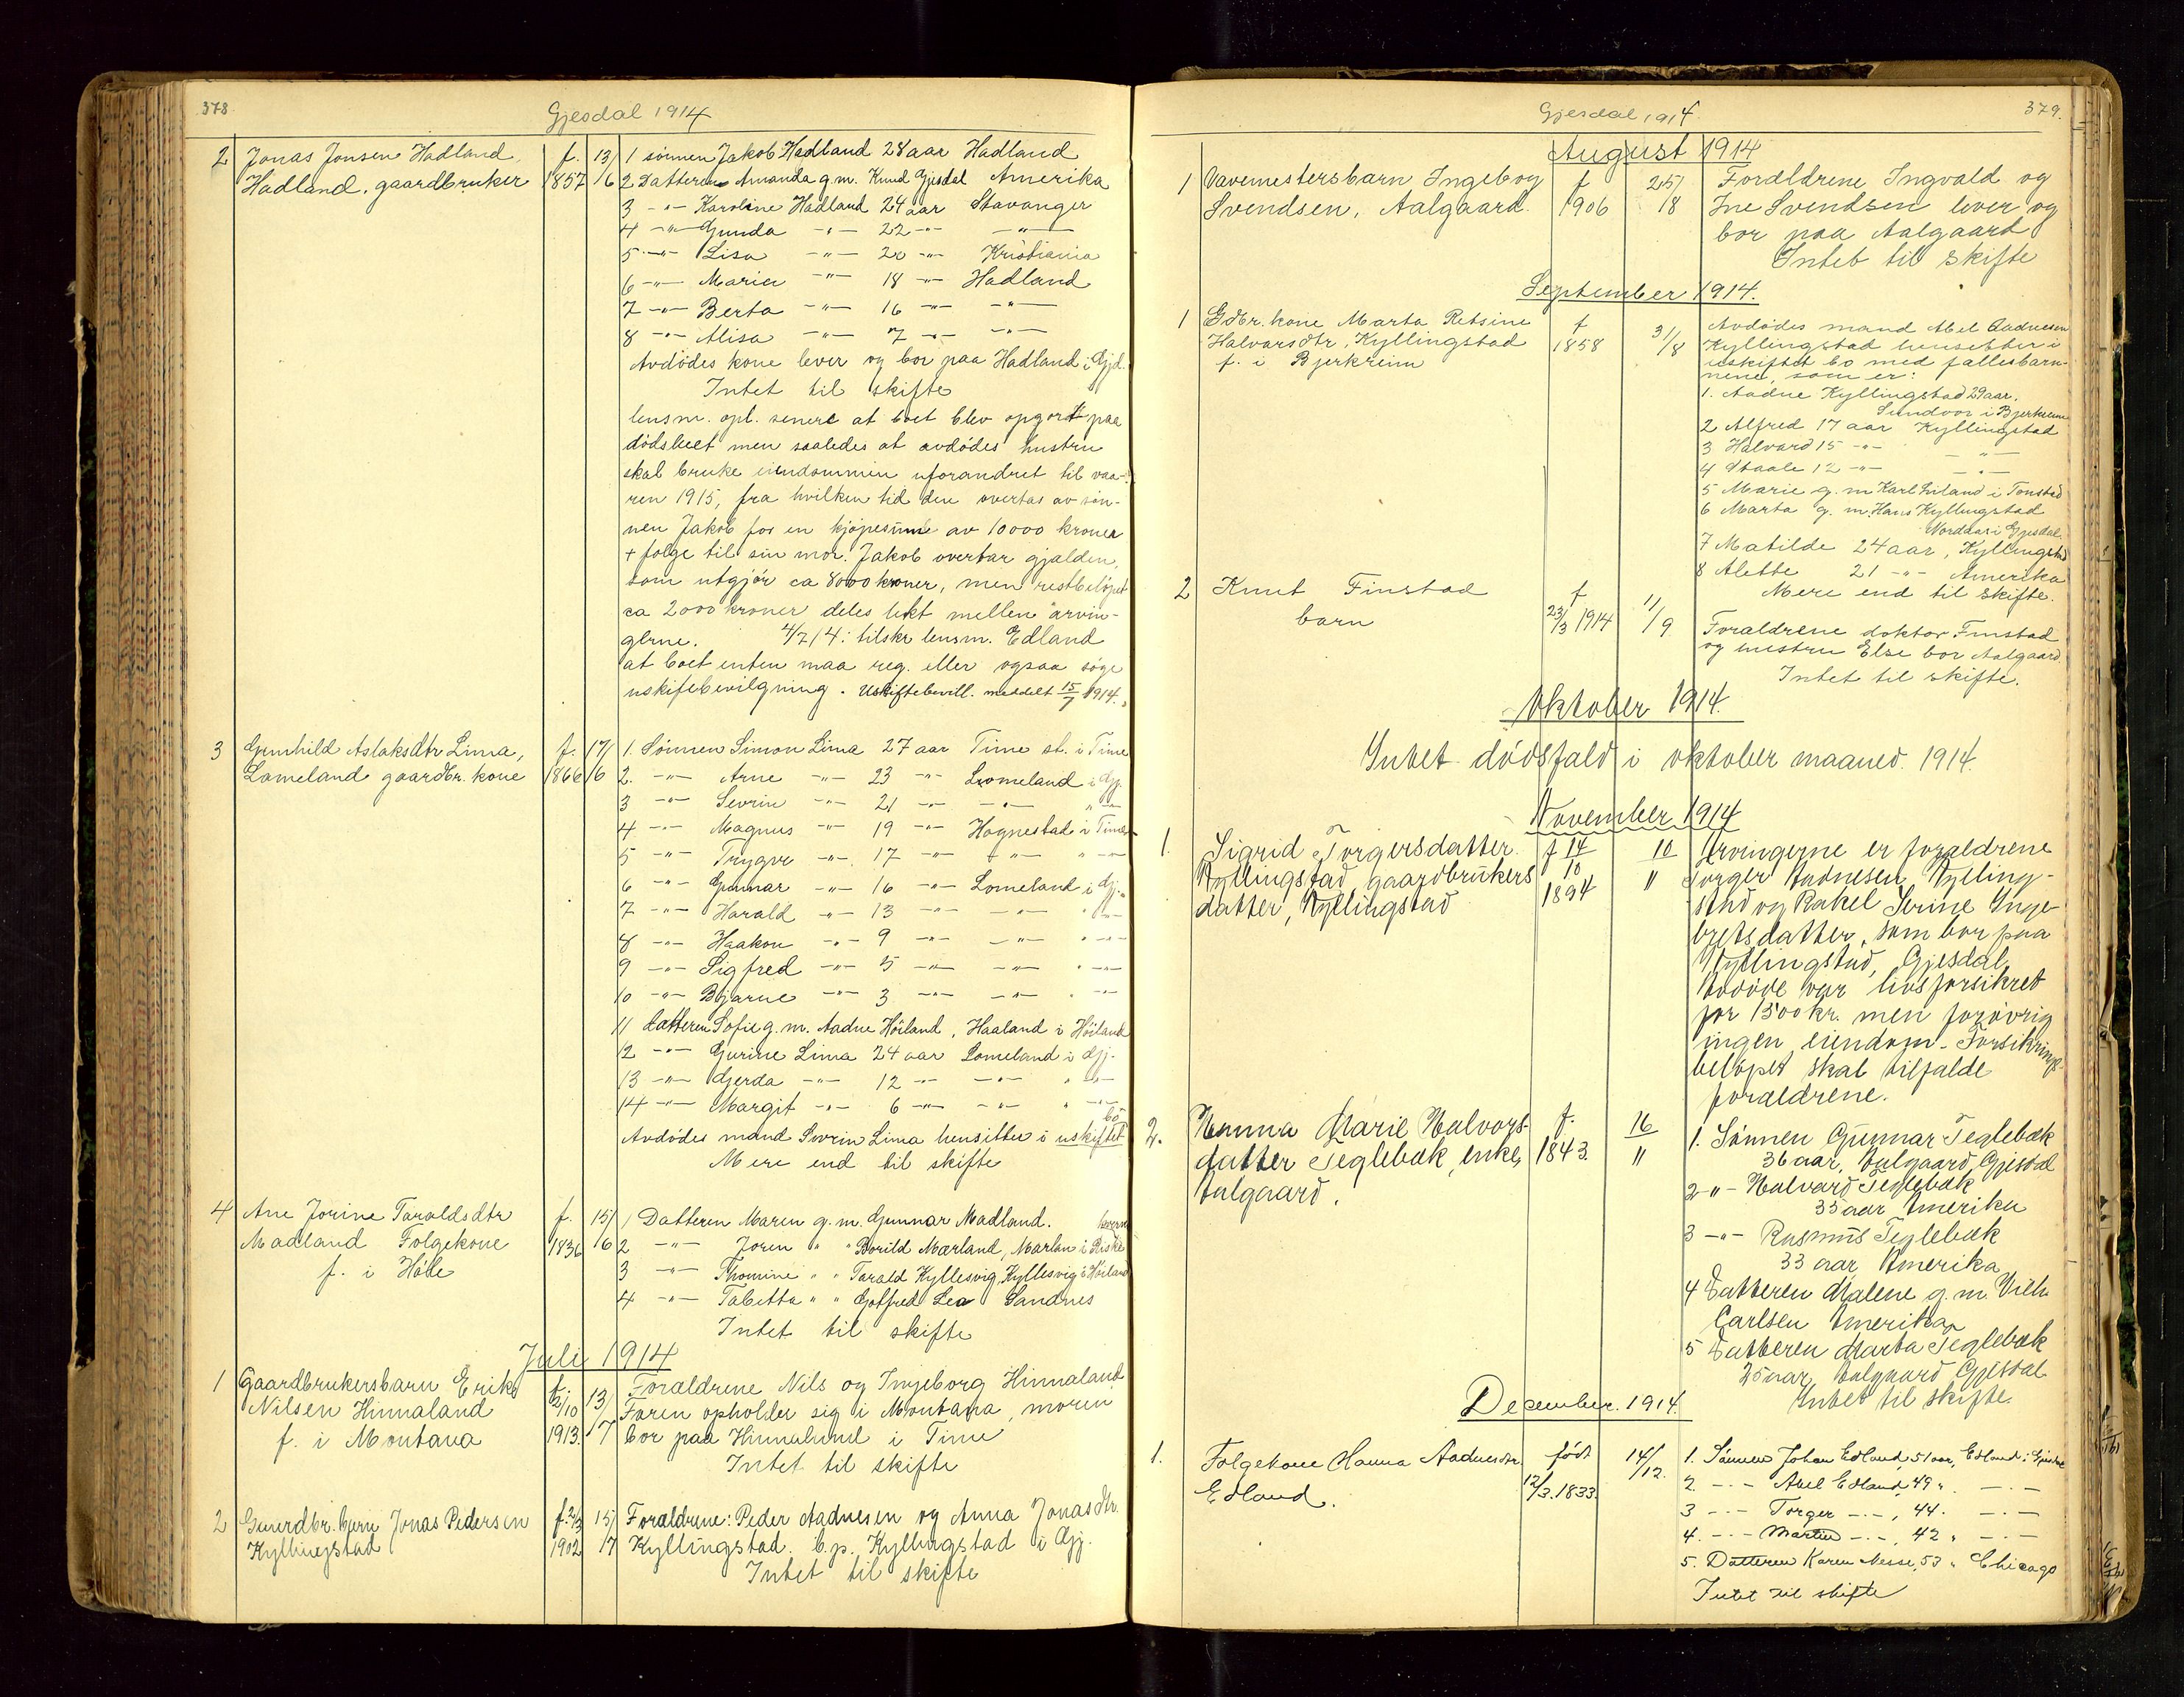 378.
Gjesdal 1914
2 Jonas Jonsen Hadland, f. 13/ 1 sönnen Jakob Hadland 28 aar Hadland
Hadland, gaardbruker 1857 16 2 Datteren Amanda g.m. Knud Gjesdal Amerika
3 -"- Karoline Hadland 24 aar Stavanger
4 -"- Gunda -"- 22 -"- -"-
5 -"- Lisa -"- 20 -"- Kristiania
6 -"- Maria -"- 18 -"- Hadland
7 -"- Berta -"- 16 -"- -"-
8 -"- Alisa -"- 7 -"- -"-
Avdödes kone lever og bor paa Hadland i Gjd.
Intet til skifte
lensm. opl. senere at boet blev opgort paa
dödsleiet men saaledes at avdödes hustru
skal bruke eiendommen uforandret til vaa-
ren 1915, fra hvilken tid den overtas av sön-
nen Jakob for en kjöpesum av 10000 kroner
+ folge til sin mor. Jakob overtar gjælden,
som utgjör ca 8000 kroner, men restbelöpet
ca 2000 kroner deles likt mellem arvin-
gerne. 4/7 14: tilskr lensm. Edland
at boet enten maa reg. eller ogsaa söge
uskiftebevilgning. Uskiftebevill. meddelt 15/7 1914.
3 Gunhild Aslaksdtr Lima, f. 17/ 1. Sönnen Simon Lima 27 aar Time st. i Time
Lomeland gaardbr. kone 1866 16 2. -"- Arne -"- 23 -"- Lomeland i Gj.
3 -"- Sevrin -"- 21 -"- -"- " -"-
4 -"- Magnus -"- 19 -"- Hognestad i Time
5 -"- Trygve -"- 17 -"- -"- " -"-
6 -"- Gunnar -"- 16 -"- Lomeland i Gj.
7 -"- Harald -"- 13 -"- -"- " -"-
8 -"- Haakon -"- 9 -"- -"- " -"-
9 -"- Sigfred -"- 5 -"- -"- " -"-
10 -"- Bjarne -"- 3 -"- -"- " -"-
11 datteren Sofie g.m. Aadne Höiland, Haaland i Höiland
12 -"- Gurine Lima 24 aar Lomeland i Gj.
13 -"- Gjerda -"- 12 -"- -"- " -"-
14 -"- Margit -"- 6 -"- -"- " -"-
Avdödes mand Sevrin Lima hensitter i uskiftet bo
Mere end til skifte
4 Ane Jorine Taraldsdtr f. 15/ 1 Datteren Maren g.m. Gunnar Madland.
Madland Folgekone 1836 16 2 -"- Joren " " Borild Mærland, Marlan i Riske
f. i Höle 3 -"- Thomine " " Tarald Kyllesvig, Kyllesvig i Höiland
4 -"- Tabitta " " Gotfred Lea Sandnes
Intet til skifte
Juli 1914
1 Gaardbrukersbarn Erik f. 13/ Foraldrene Nils og Ingeborg Hinnaland
Nilsen Hinnaland 2/10 Faren opholder sig i Montana, moren
f. i Montana 1913. 7 bor paa Hinnaland i Time
Intet til skifte
2 Gaardbr. barn Jonas Pedersen f. 15/ Foraldrene: Peder Aadnesen og Anna Jonasdtr.
Kyllingstad 1902 17 Kyllingstad. b.p. Kyllingstad i Gj.
Intet til skifte
Gjesdal 1914. 379.
August 1914
1 Vavemestersbarn Ingeborg f 25/ Foraldrene Ingvald og
Svendsen, Aalgaard. 1906 18 Ine Svendsen lever og
bor paa Aalgaard
Intet til skifte
September 1914.
1 Gdbr. kone Marta Retsine f 31/8 Avdödes mand Abel Aadnesen
Halvarsdtr, Kyllingstad 1858 Kyllingstad hensitter i
f. i Bjerkreim uskiftet bo med fællesbarn-
nene, som er:
1. Aadne Kyllingstad 29 aar.
Sundvor i Bjerkreim
2 Alfred 17 aar Kyllingstad
3 Halvard 15 -"- -"-
4 Staale 12 -"- -"-
5 Marie g.m Karl Liland i Tonstad
6 Marta g.m. Hans Kyllingstad
Nordaas i Gjesdal.
7 Matilde 24 aar, Kyllingstad
8 Alette 21 -"- Amerika
Mere end til skifte.
2 Knut Finstad f 11/9
barn 23/3 1914 Foraldrene doktor Finstad
og hustru Else bor Aalgaard.
Intet til skifte.
Oktober 1914.
Intet dödsfald i oktober maaned. 1914.
November 1914
1. Sigrid Torgersdatter f 14 10 Arvingerne er foraldrene
Kyllingstad gaardbrukers 10 11 Torger Aadnesen Kylling-
datter, Kyllingstad 1894 stad og Rakel Serine Inge-
bretsdatter, som bor paa
Kyllingstad, Gjesdal.
Avdöde var livsforsikret
for 1500 kr. men forövrig
ingen eiendom. Forsikrings-
belöpet skal tilfalde
foraldrene.
2. Hanna Marie Halvors- f. 16 1. Sönnen Gunnar Teglebæk
datter Teglebæk, enke, 1843. 11 36 aar, Aalgaard, Gjesdal
Aalgaard. 2 -"- Halvard Teglebæk
35 aar Amerika
3 -"- Rasmus Teglebæk
33 aar Amerika
4 Datteren Malene g.m. Vilh.
Carlsen Amerika
5 Datteren Marta Teglebæk
25 aar, Aalgaard Gjesdal
Intet til skifte.
December. 1914.
1. Folgekone Hanna Aadnesdtr. födt 14/12. 1. Sönnen Johan Edland, 51 aar, Edland i Gjesdal
Edland. 12/3.1833. 2. -"- Abel Edland, 49 " -"-
3 -"- Torger -"-, 44. -"-
4. -"- Martin -"-, 42 " -"-
5. Datteren Karen Nesse, 53 " Chicago
Intet til skifte